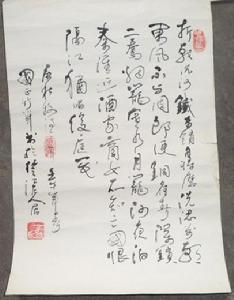 折戟沉沙鐵未銷自將磨洗認前朝
東風不與周郎便銅雀春深鎖
二喬烟籠寒水月籠沙夜泊
秦淮近酒家商女不知亡國恨
隔江猶唱後庭花
唐杜牧
書於人居